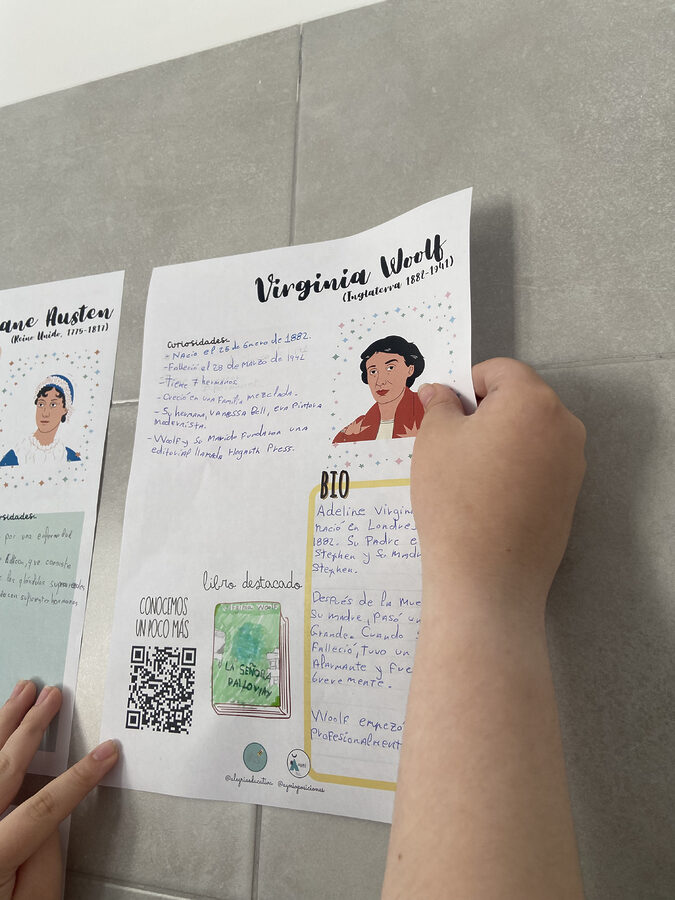 ane Austen
(Reino Unido, 1775-1817)
osidades.
por una enfermedad
que consiste
las glándulas suprarrenales
Virginia Woolf
(Inglaterra 1882-1941)
Curiosidades.
- Nació el 25 de Enero de 1882.
- Falleció el 28 de Marzo de 1941
- Tiene 7 hermanos.
- Creció en una familia mezclada.
- Su hermana, Vanessa Bell, era Pintora
modernista.
- Woolf y su Marido Fundaron una
editorial llamada Hogarth Press.
BIO
Adeline Virgin
nació en Londre
1882. Su Padre e
Stephen y su Madr
Stephen.
Después de la mue
su madre, Pasó un
Grande. Cuando
Falleció, tuvo un
Alarmante y fue
brevemente.
Woolf empezó
Profesionalment
libro destacado
VIRGINIA WOOLF
LA SEÑORA
DALLOWAY
CONOCEMOS
UN POCO MÁS
@alegriaeducativa @aymaoposiciones